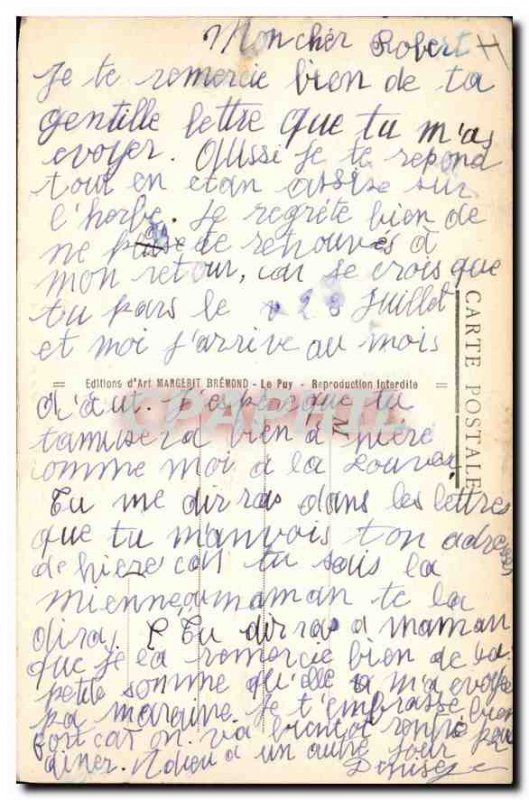 Mon cher Robert
Je te remercie bien de ta
gentille lettre que tu m'as
evoyer. Aussi je te repond
tout en etan assise sur
l'herbe. Je regrète bien de
ne pas te retrouvés à
mon retour, car je crois que
tu pars le 28 Juillot
et moi j'arrive au mois
CARTE POSTALE
Editions d'Art MARGERIT BRÉMOND - Le Puy - Reproduction Interdite
d'aut. J'esper que tu
tamusera bien à
comme moi a la
Tu me diras dans les lettres
que tu manvois ton adresse
de car tu sais la
mienne, maman te la
dira. Tu diras a maman
que je la remercie bien de la
petite somme qu'elle m'a evoyer
ma maraine. Je t'embrasse bien
fort car m. va bientot rentre pour
diner. Adieu a un autre jour
Denise